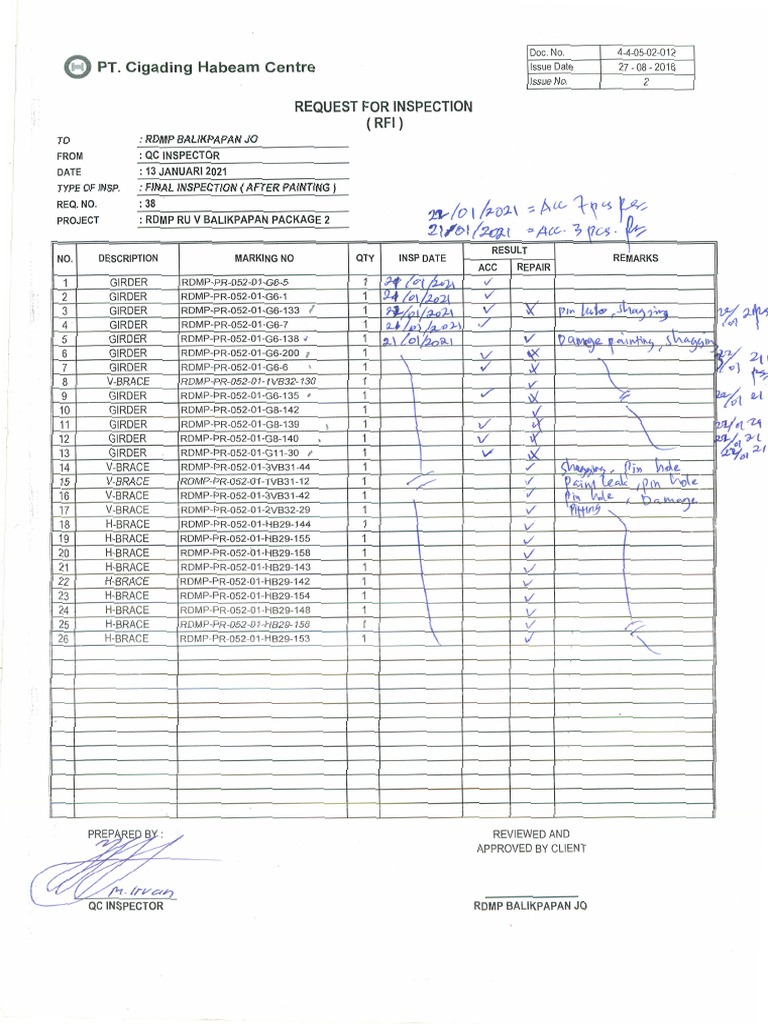 PT. Cigading Habeam Centre
Doc. No. 4-4-05-02-012
Issue Date 27 - 08 - 2016
Issue No. 2
REQUEST FOR INSPECTION
( RFI )
TO : RDMP BALIKPAPAN JO
FROM : QC INSPECTOR
DATE : 13 JANUARI 2021
TYPE OF INSP. : FINAL INSPECTION ( AFTER PAINTING )
REQ. NO. : 38
PROJECT : RDMP RU V BALIKPAPAN PACKAGE 2
22/01/2021 = Acc 7 pcs
21/01/2021 = Acc. 3 pcs.
NO. DESCRIPTION MARKING NO QTY INSP DATE RESULT REMARKS
ACC REPAIR
1 GIRDER RDMP-PR-052-01-G6-5 1 21/01/2021 ✓
2 GIRDER RDMP-PR-052-01-G6-1 1 21/01/2021 ✓
3 GIRDER RDMP-PR-052-01-G6-133 1 22/01/2021 ✓ shagging
4 GIRDER RDMP-PR-052-01-G6-7 1 21/01/2021 ✓
5 GIRDER RDMP-PR-052-01-G6-138 1 21/01/2021 ✓ Damage painting, shagging
6 GIRDER RDMP-PR-052-01-G6-200 1 ✓
7 GIRDER RDMP-PR-052-01-G6-6 1 ✓
8 V-BRACE RDMP-PR-052-01-1VB32-130 1 ✓
9 GIRDER RDMP-PR-052-01-G6-135 1 ✓
10 GIRDER RDMP-PR-052-01-G8-142 1 ✓
11 GIRDER RDMP-PR-052-01-G8-139 1 ✓
12 GIRDER RDMP-PR-052-01-G8-140 1 ✓
13 GIRDER RDMP-PR-052-01-G11-30 1 ✓
14 V-BRACE RDMP-PR-052-01-3VB31-44 1 ✓ shagging, pin hole
15 V-BRACE RDMP-PR-052-01-1VB31-12 1 ✓ paint leak, pin hole
16 V-BRACE RDMP-PR-052-01-3VB31-42 1 ✓ pin hole, Damage
17 V-BRACE RDMP-PR-052-01-2VB32-29 1 ✓ pitting
18 H-BRACE RDMP-PR-052-01-HB29-144 1 ✓
19 H-BRACE RDMP-PR-052-01-HB29-155 1 ✓
20 H-BRACE RDMP-PR-052-01-HB29-158 1 ✓
21 H-BRACE RDMP-PR-052-01-HB29-143 1 ✓
22 H-BRACE RDMP-PR-052-01-HB29-142 1 ✓
23 H-BRACE RDMP-PR-052-01-HB29-154 1 ✓
24 H-BRACE RDMP-PR-052-01-HB29-148 1 ✓
25 H-BRACE RDMP-PR-052-01-HB29-156 1 ✓
26 H-BRACE RDMP-PR-052-01-HB29-153 1 ✓
PREPARED BY : REVIEWED AND
APPROVED BY CLIENT
M. Irvan
QC INSPECTOR RDMP BALIKPAPAN JO